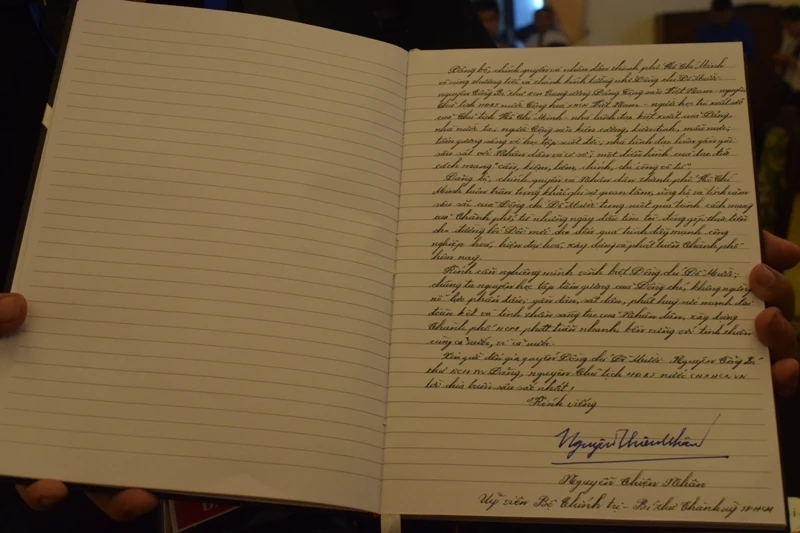 Đảng bộ, chính quyền và nhân dân thành phố Hồ Chí Minh
vô cùng thương tiếc và thành kính tưởng nhớ Đồng chí Đỗ Mười -
nguyên Tổng Bí thư BCH Trung ương Đảng Cộng sản Việt Nam, nguyên
Chủ tịch HĐBT nước Cộng hòa XHCN Việt Nam - người học trò xuất sắc
của Chủ tịch Hồ Chí Minh - nhà lãnh đạo kiệt xuất của Đảng,
nhà nước ta, người Cộng sản kiên cường, kiên trung, mẫu mực;
tấm gương sáng về học tập suốt đời, nhà lãnh đạo luôn gần gũi
sâu sát với Nhân dân và cơ sở; một điển hình của đạo đức
cách mạng "cần, kiệm, liêm, chính, chí công vô tư".
Đảng bộ, chính quyền và Nhân dân Thành phố Hồ Chí
Minh luôn trân trọng khắc ghi sự quan tâm, ủng hộ và tình cảm
sâu sắc của Đồng chí Đỗ Mười trong suốt quá trình cách mạng
của Thành phố, từ những ngày đầu tìm tòi đóng góp thực tiễn
cho đường lối Đổi mới cho đến quá trình đẩy mạnh công
nghiệp hóa, hiện đại hóa, xây dựng và phát triển Thành phố
hôm nay.
Kính cẩn nghiêng mình vĩnh biệt Đồng chí Đỗ Mười;
chúng ta nguyện học tập tấm gương của Đồng chí, không ngừng
nỗ lực phấn đấu, gần dân, sát dân, phát huy sức mạnh đại
đoàn kết và tinh thần sáng tạo của Nhân dân, xây dựng
Thành phố HCM phát triển nhanh, bền vững với tinh thần
cùng cả nước, vì cả nước.
Xin gửi đến gia quyến Đồng chí Đỗ Mười - Nguyên Tổng Bí
thư BCHTW Đảng, nguyên Chủ tịch HĐBT nước CHXHCN VN
lời chia buồn sâu sắc nhất!
Kính viếng
Nguyễn Thiện Nhân
Nguyễn Thiện Nhân
Uỷ viên Bộ Chính trị - Bí thư Thành uỷ TP.HCM